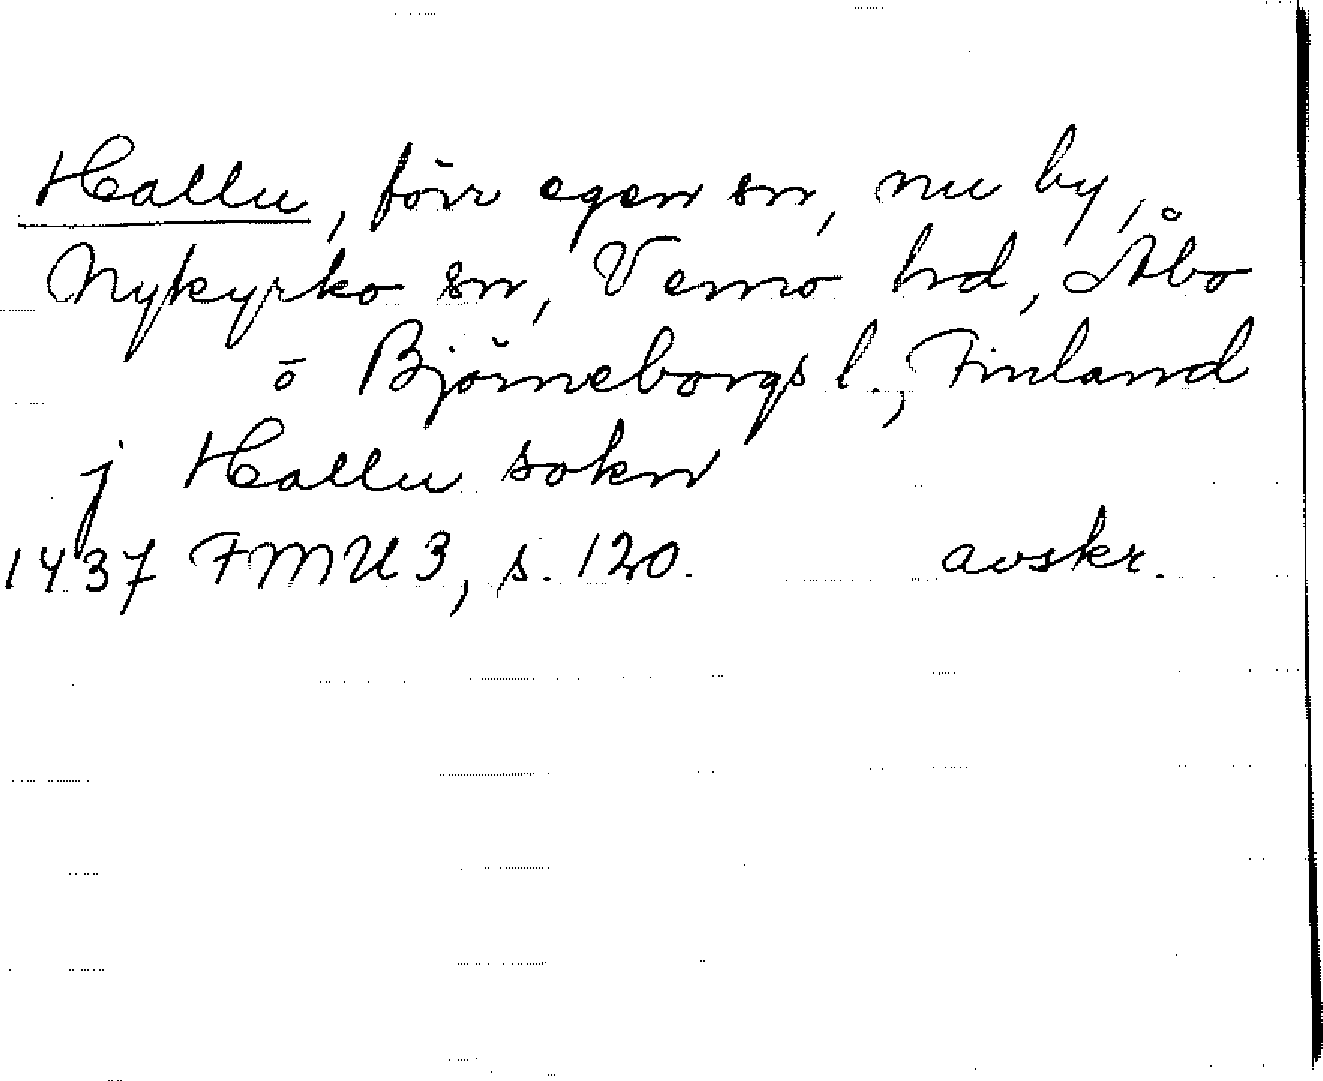 Hallu, förr egen sn, nu by,
Nykyrko sn, Vemo hd, Åbo
o Björneborgs l., Finland
j Hallu sokn
1437 FMU 3, s. 120. avskr.